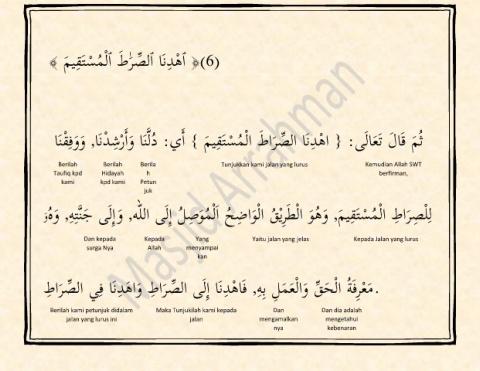 (6)﴿ ٱهْدِنَا ٱلصِّرَٰطَ ٱلْمُسْتَقِيمَ ﴾
ثُمَّ قَالَ تَعَالَى: { اهْدِنَا الصِّرَاطَ الْمُسْتَقِيمَ } أَي: دُلَّنَا وَأَرْشِدْنَا, وَوَفِقْنَا
Kemudian Allah SWT berfirman, Tunjukkan kami jalan yang lurus Berila h Petun juk Berilah Hidayah kpd kami Berilah Taufiq kpd kami
لِلْصِرَاطِ الْمُسْتَقِيمَ, وَهُوَ الْطَرِيْقُ الْوَاضِحُ الْمُوَصِلُ إِلَى اللّٰه, وَإِلَى جَنَّتِهِ, وَهُوَ
Kepada Jalan yang lurus Yaitu jalan yang jelas Yang menyampai kan Kepada Allah Dan kepada surga Nya
مَعْرِفَةُ الْحَقِّ وَالْعَمَلِ بِهِ, فَاهْدِنَا إِلَى الصِّرَاطِ وَاهْدِنَا فِي الصِّرَاطِ.
Dan dia adalah mengetahui kebenaran Dan mengamalkan nya Maka Tunjukilah kami kepada jalan Berilah kami petunjuk didalam jalan yang lurus ini
Masjid Arrahman